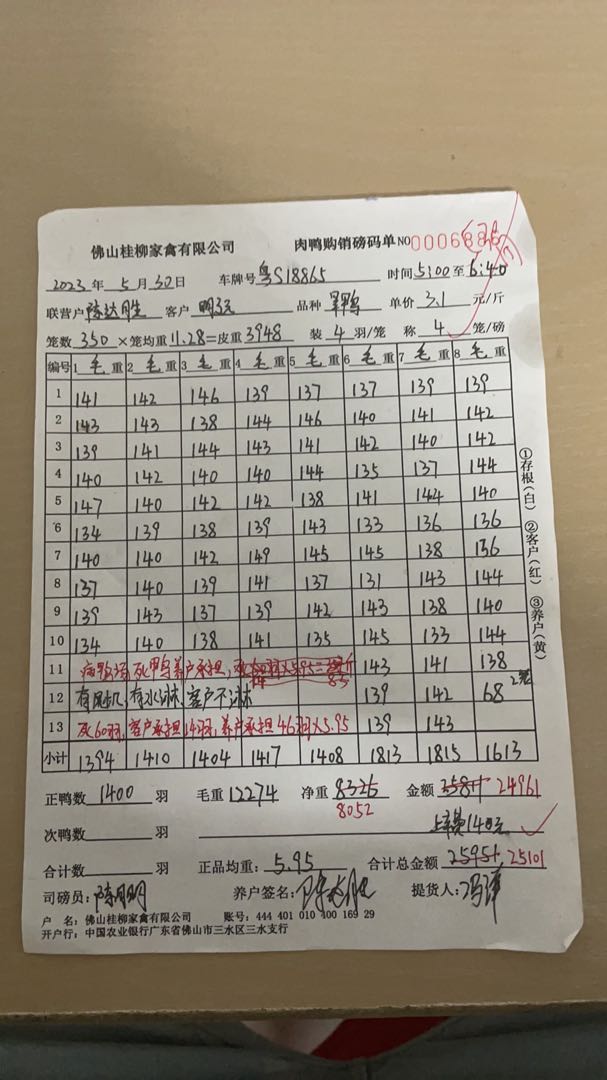 佛山桂柳家禽有限公司 肉鸭购销磅码单 NO
2023 年 5 月 30 日 车牌号 粤S18865 时间 5:00 至 6:40
联营户 陈达胜 客户 品种 单价 3.1 元/斤
笼数 350 ×笼均重 11.28=皮重 3948 装 4 羽/笼 称 4 笼/磅
编号 1 毛 重 2 毛 重 3 毛 重 4 毛 重 5 毛 重 6 毛 重 7 毛 重 8 毛 重
1 141 142 146 139 137 137 139 139
2 143 143 138 144 146 140 141 142
3 139 141 144 143 141 142 140 142
4 140 142 140 140 144 135 137 144
5 147 140 142 142 138 141 144 140
6 134 139 138 139 143 133 136 136
7 140 140 142 149 145 145 138 136
8 137 140 139 141 137 131 143 144
9 139 143 137 139 142 143 138 140
10 134 140 138 141 135 145 133 144
11 死鸭鸟养户承担, 143 141 138
12 有风机,有水淋,客户不淋水 139 142 68 2笼
13 死60羽,客户承担14羽,养户承担46羽×5.95 139 143
小计 1394 1410 1404 1417 1408 1813 1815 1613
正鸭数 1400 羽 毛重 12274 净重 8325 金额 24961
8052
次鸭数 羽 上车费140元
合计数 羽 正品均重: 5.95 合计总金额 25951 25101
司磅员: 养户签名: 陈达胜 提货人:
户 名: 佛山桂柳家禽有限公司 账号: 444 401 010 400 169 29
开户行: 中国农业银行广东省佛山市三水区三水支行
①存根(白) ②客户(红) ③养户(黄)